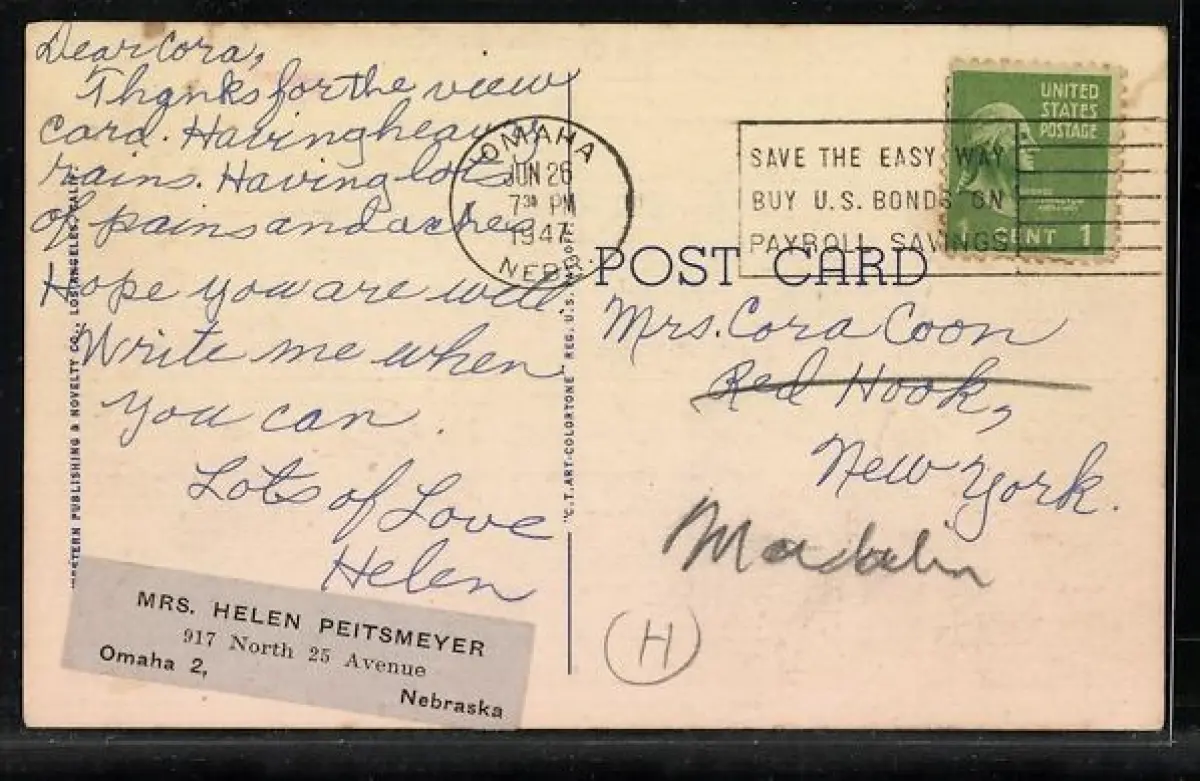 Dear Cora,
Thanks for the view
card. Having heavy
rains. Having lots
of pains and aches
Hope you are well.
Write me when
you can.
Lots of Love
Helen
MRS. HELEN PEITSMEYER
917 North 25 Avenue
Omaha 2,
Nebraska
WESTERN PUBLISHING & NOVELTY CO., LOS ANGELES, CALIF.
"C.T. ART-COLORTONE" REG. U.S. PAT. OFF.
OMAHA
JUN 26
7 30 PM
1947
NEBR.
SAVE THE EASY WAY
BUY U.S. BONDS ON
PAYROLL SAVINGS
UNITED
STATES
POSTAGE
1 CENT 1
POST CARD
Mrs. Cora Coon
Red Hook,
New York.
Madalin
H